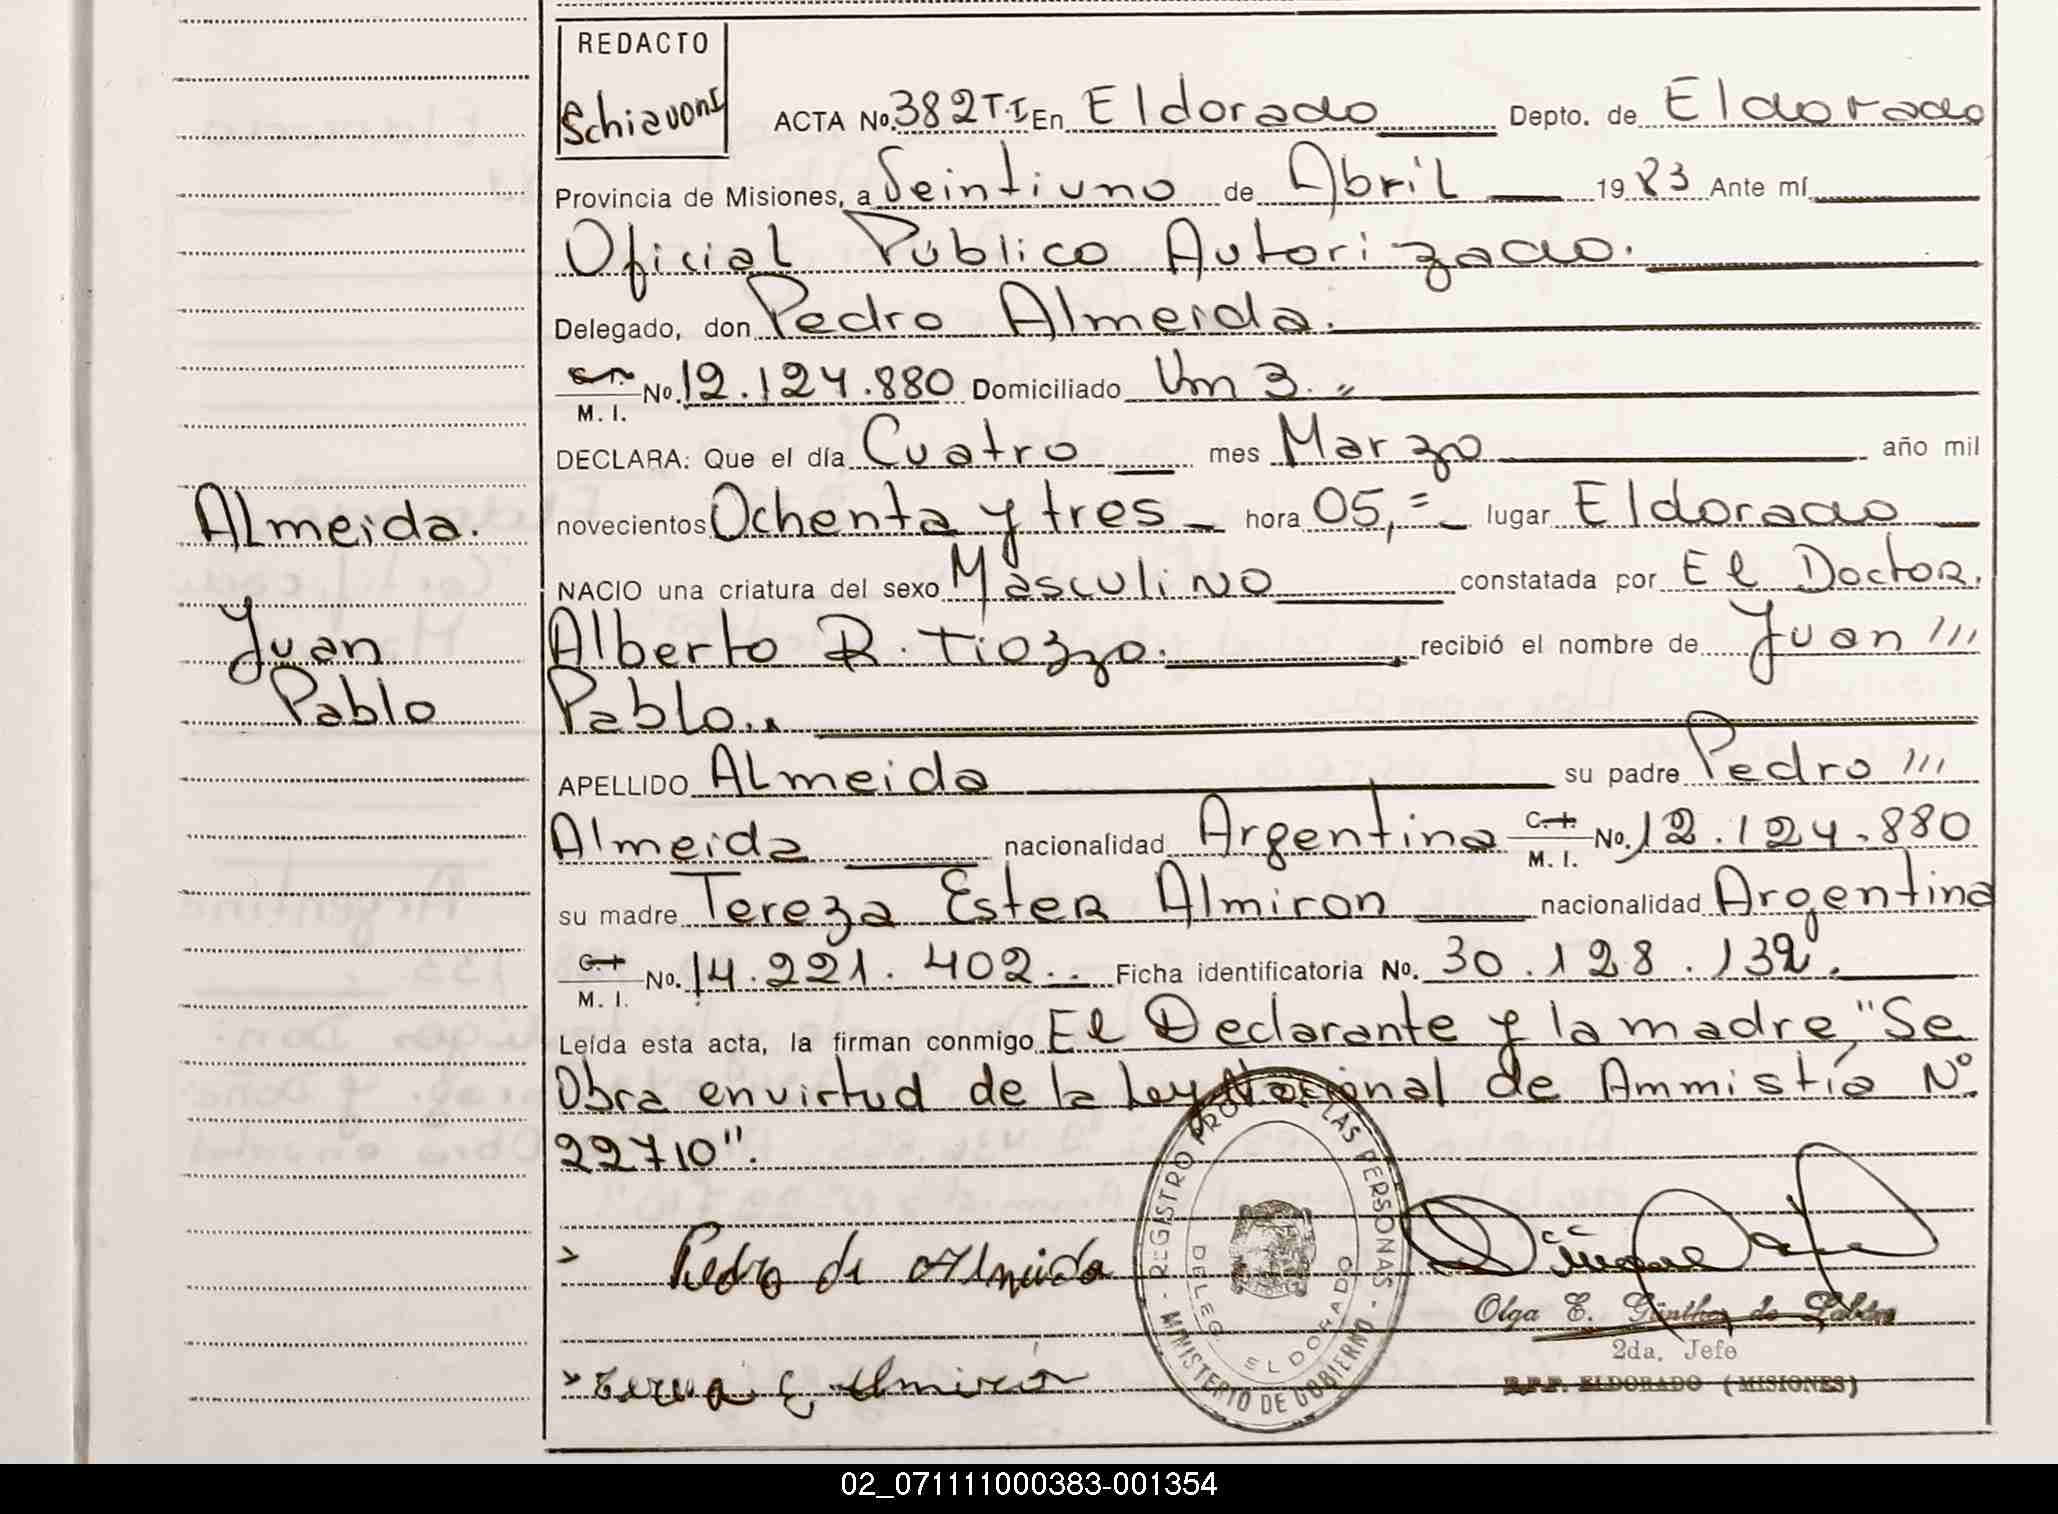 REDACTO
Schiavoni
ACTA No. 382 T-I En Eldorado Depto. de Eldorado
Provincia de Misiones, a Veintiuno de Abril 1983 Ante mí
Oficial Público Autorizado.
Delegado, don Pedro Almeida.
M. I. No. 12.124.880 Domiciliado Km 3. "
DECLARA: Que el día Cuatro mes Marzo año mil
Almeida. novecientos Ochenta y tres hora 05,= lugar Eldorado
NACIO una criatura del sexo Masculino constatada por El Doctor.
Juan Alberto R. Tiozzo. recibió el nombre de Juan ///
Pablo Pablo..
APELLIDO Almeida su padre Pedro ///
Almeida nacionalidad Argentina C.I. M. I. No. 12.124.880
su madre Tereza Ester Almiron nacionalidad Argentina
C.I. M. I. No. 14.221.402.. Ficha identificatoria No. 30.128.132.
Leída esta acta, la firman conmigo El Declarante y la madre, "Se
Obra en virtud de la Ley Nacional de Ammistía Nº
22710".
REGISTRO PROV. DE LAS PERSONAS - MINISTERIO DE GOBIERNO -
DELEG. ELDORADO
Pedro de Almeida
Olga E. Günther de
2da. Jefe
Almirón
R.P.P. ELDORADO (MISIONES)
02_071111000383-001354